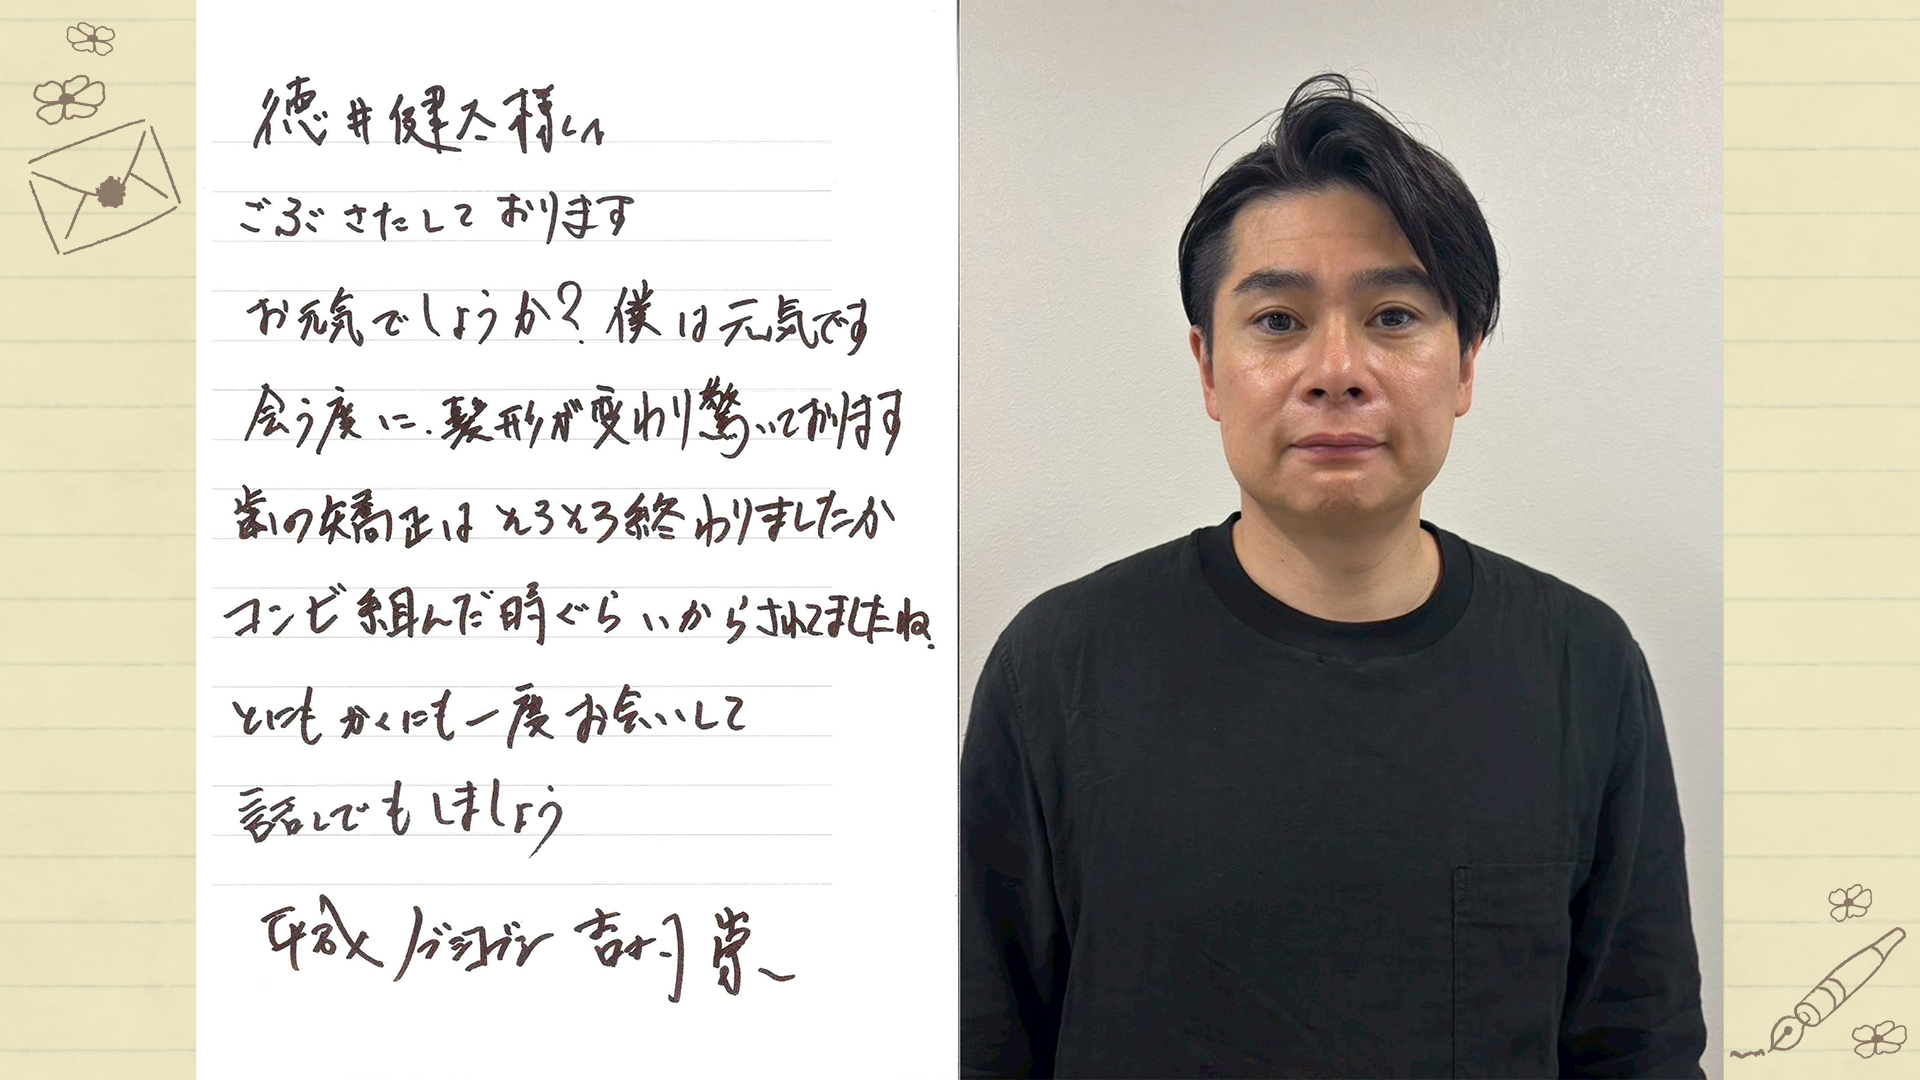 徳井健太様へ
ごぶさたしております
お元気でしょうか？僕は元気です
会う度に、髪形が変わり驚いております
歯の矯正はそろそろ終わりましたか
コンビ組んだ時ぐらいからされてましたね。
とにもかくにも一度お会いして
話しでもしましょう
平成ノブシコブシ 吉村 崇